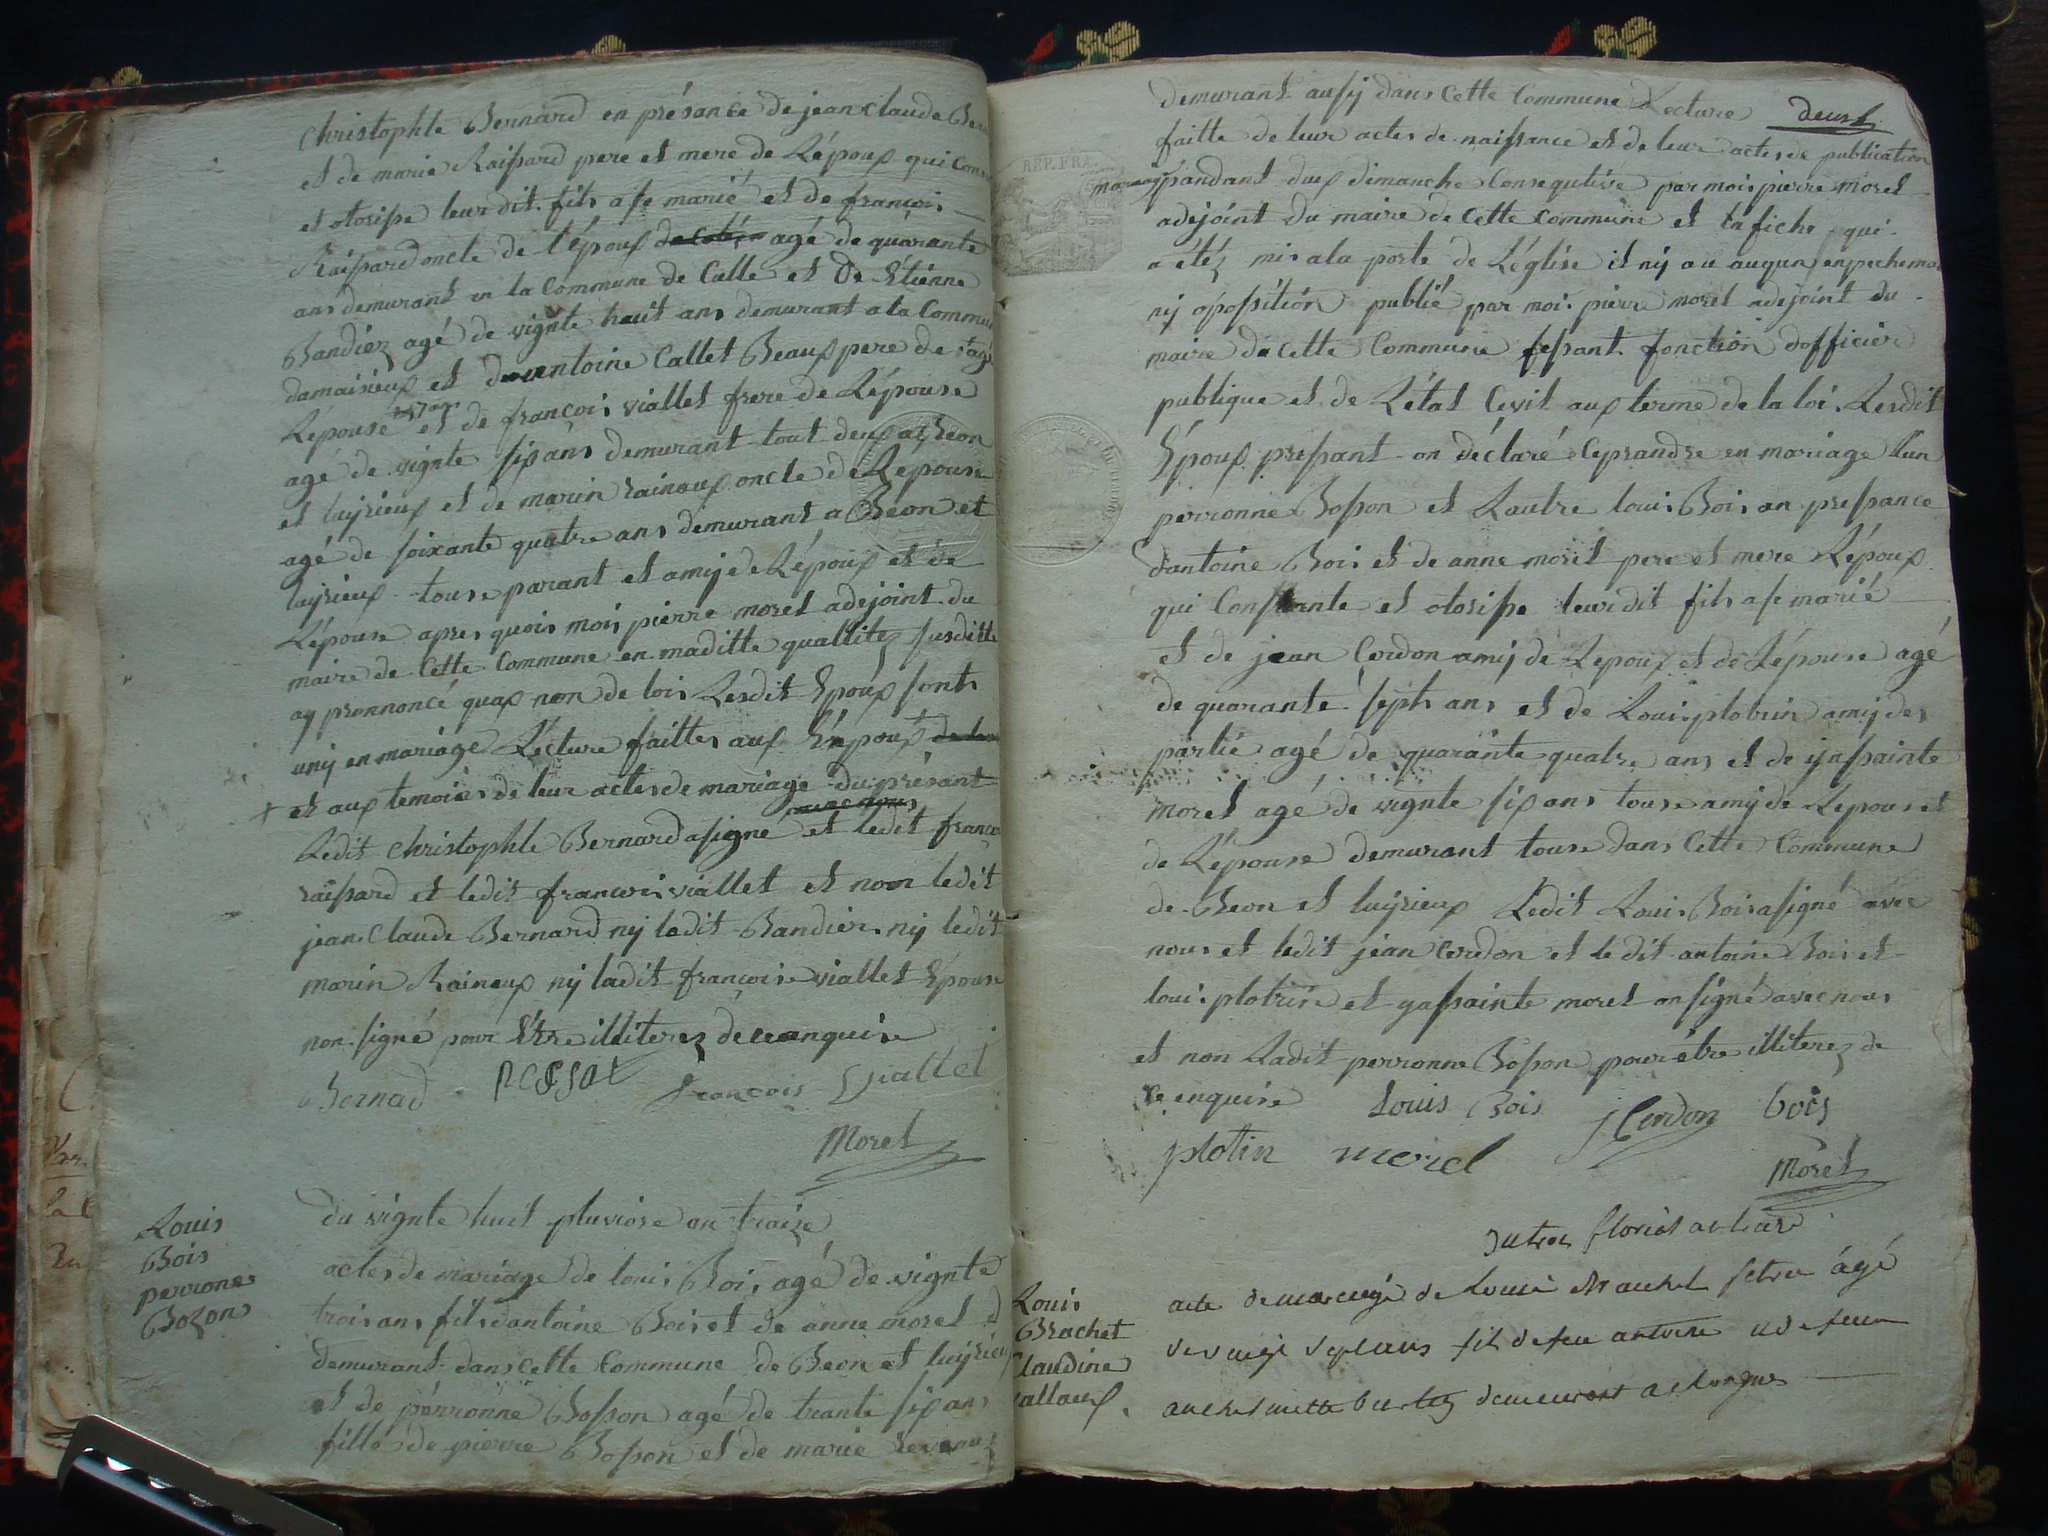 Christophle Bernard en présance de jean Claude Ber
et de marie Raissard pere et mere de Lépoux qui Cons
et otorisse leur dit fils a se marié et de francois
Raissard oncle de lépoux agé de quarante
ans demurant en la Commune de Calle et De Etienne
Bandiez agé de vignte heuit ans demurant a la Commun
damaisieux et de antoine Callet Beaux pere de
Lépouse et de francois viallet frere de Lépouse
agé de vignte six ans demurant tout deux a Beon
et luijrieux et de marin Rainaux oncle de Lepouse
agé de soixante quatre ans demurant a Beon et
luijrieux touse parant et amij de Lépoux et de
Lépouse apres quois mois pierre morel adejoint du
maire de cette Commune en maditte quallitez susditte
aij pronnoncé quax non de lois Lesdit Epoux sonts
unij en mariage Lecture faittes aux Epoux
+ et aux temoins de leur actes de mariage du présant
Ledit Christophle Bernard a signe et ledit franco
raissard et ledit francois viallet et non ledit
jean Claude Bernard nij ledit Bandier nij ledit
marin Rainaux nij ladit francoise viallet Epouse
non signé pour Etre illiterez de ce enquise
Bernad francois Viallet
Morel
Louis
Bois
perrone
Bozon
du vignte huit pluviose an traize
actes de mariage de louis Bois agé de vignte
trois ans fils dantoine Bois et de anne morel
demurant dans cette Commune de Beon et luijrieux
et de pérronne Bosson agé de trante six ans
fille de pierre Bosson et de marie
demurant ausij dans Cette Commune Lecture
faitte de leur actes de naissance et de leur actes de publication
pandant deux dimanche Consequtive par mois pierre morel
adejoint du maire de cette commune et lafiche qui
a étéz mis a la porte de Léglise il nij a u augun enpechemen
nij oposition publié par moi pierre morel adejoint du
maire de cette Commune fesant fonction dofficier
publique et de Létat Cevil aux terme de la loi. Lesdit
Epoux pressant on déclaré seprandre en mariage lun
perronne Bosson et Lautre louis Bois an pressance
dantoine Bois et de anne morel pere et mere Lépoux
qui Consante et otorisse leur dit fils a se marié
et de jean Cerdon amij de Lepoux et de Lépouse agé
de quarante septs ans et de Louis plotrin amij des
partié agé de quarante quatre ans et de ijassainte
morel agé de vignte six ans touse amij de Lepoux et
de Lépouse demurant touse dans Cette Commune
de Beon et luijrieux Ledit Louis Bois a signé avec
nous et ledit jean Cerdon et le dit antoine Bois et
loui plotrin et yassainte morel on signé avec nous
et non Ladit perronne Bosson pour étre illiterez de
ce enquise Louis Bois J Cerdon bois
plotin morel
Morel
Louis
Brachet
Claudine
callaux
du trois floréal an
acte de mariage de Louis Brachet agé
de vingt sept ans fils de feu antoine et de feue
demeurant a